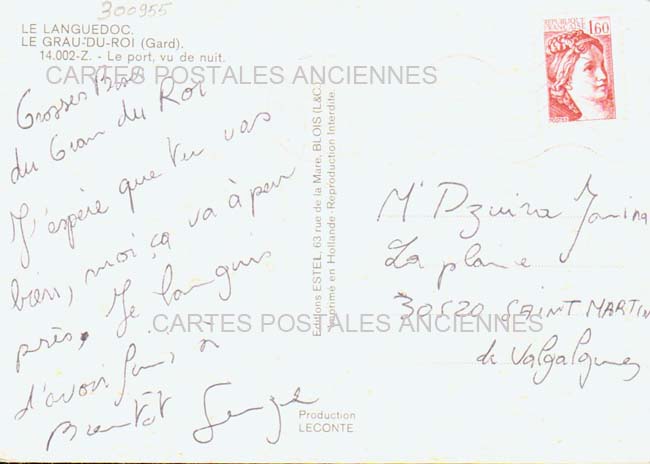 300955
LE LANGUEDOC.
LE GRAU-DU-ROI (Gard).
14.002-Z. - Le port, vu de nuit.
CARTES POSTALES ANCIENNES
REPUBLIQUE
FRANÇAISE
1,60
POSTES
Grosses Bises
du Grau du Roi
J'espère que tu vas
bien, moi ça va à peu
près. Je languis
d'avoir fini, à
Bientôt
Editions ESTEL, 63 rue de la Mare, BLOIS (L&C)
Imprimé en Hollande - Reproduction Interdite
Mr Dzuira Janina
La plaine
30520 SAINT MARTIN
de Valgalgues
CARTES POSTALES ANCIENNES
Production
LECONTE